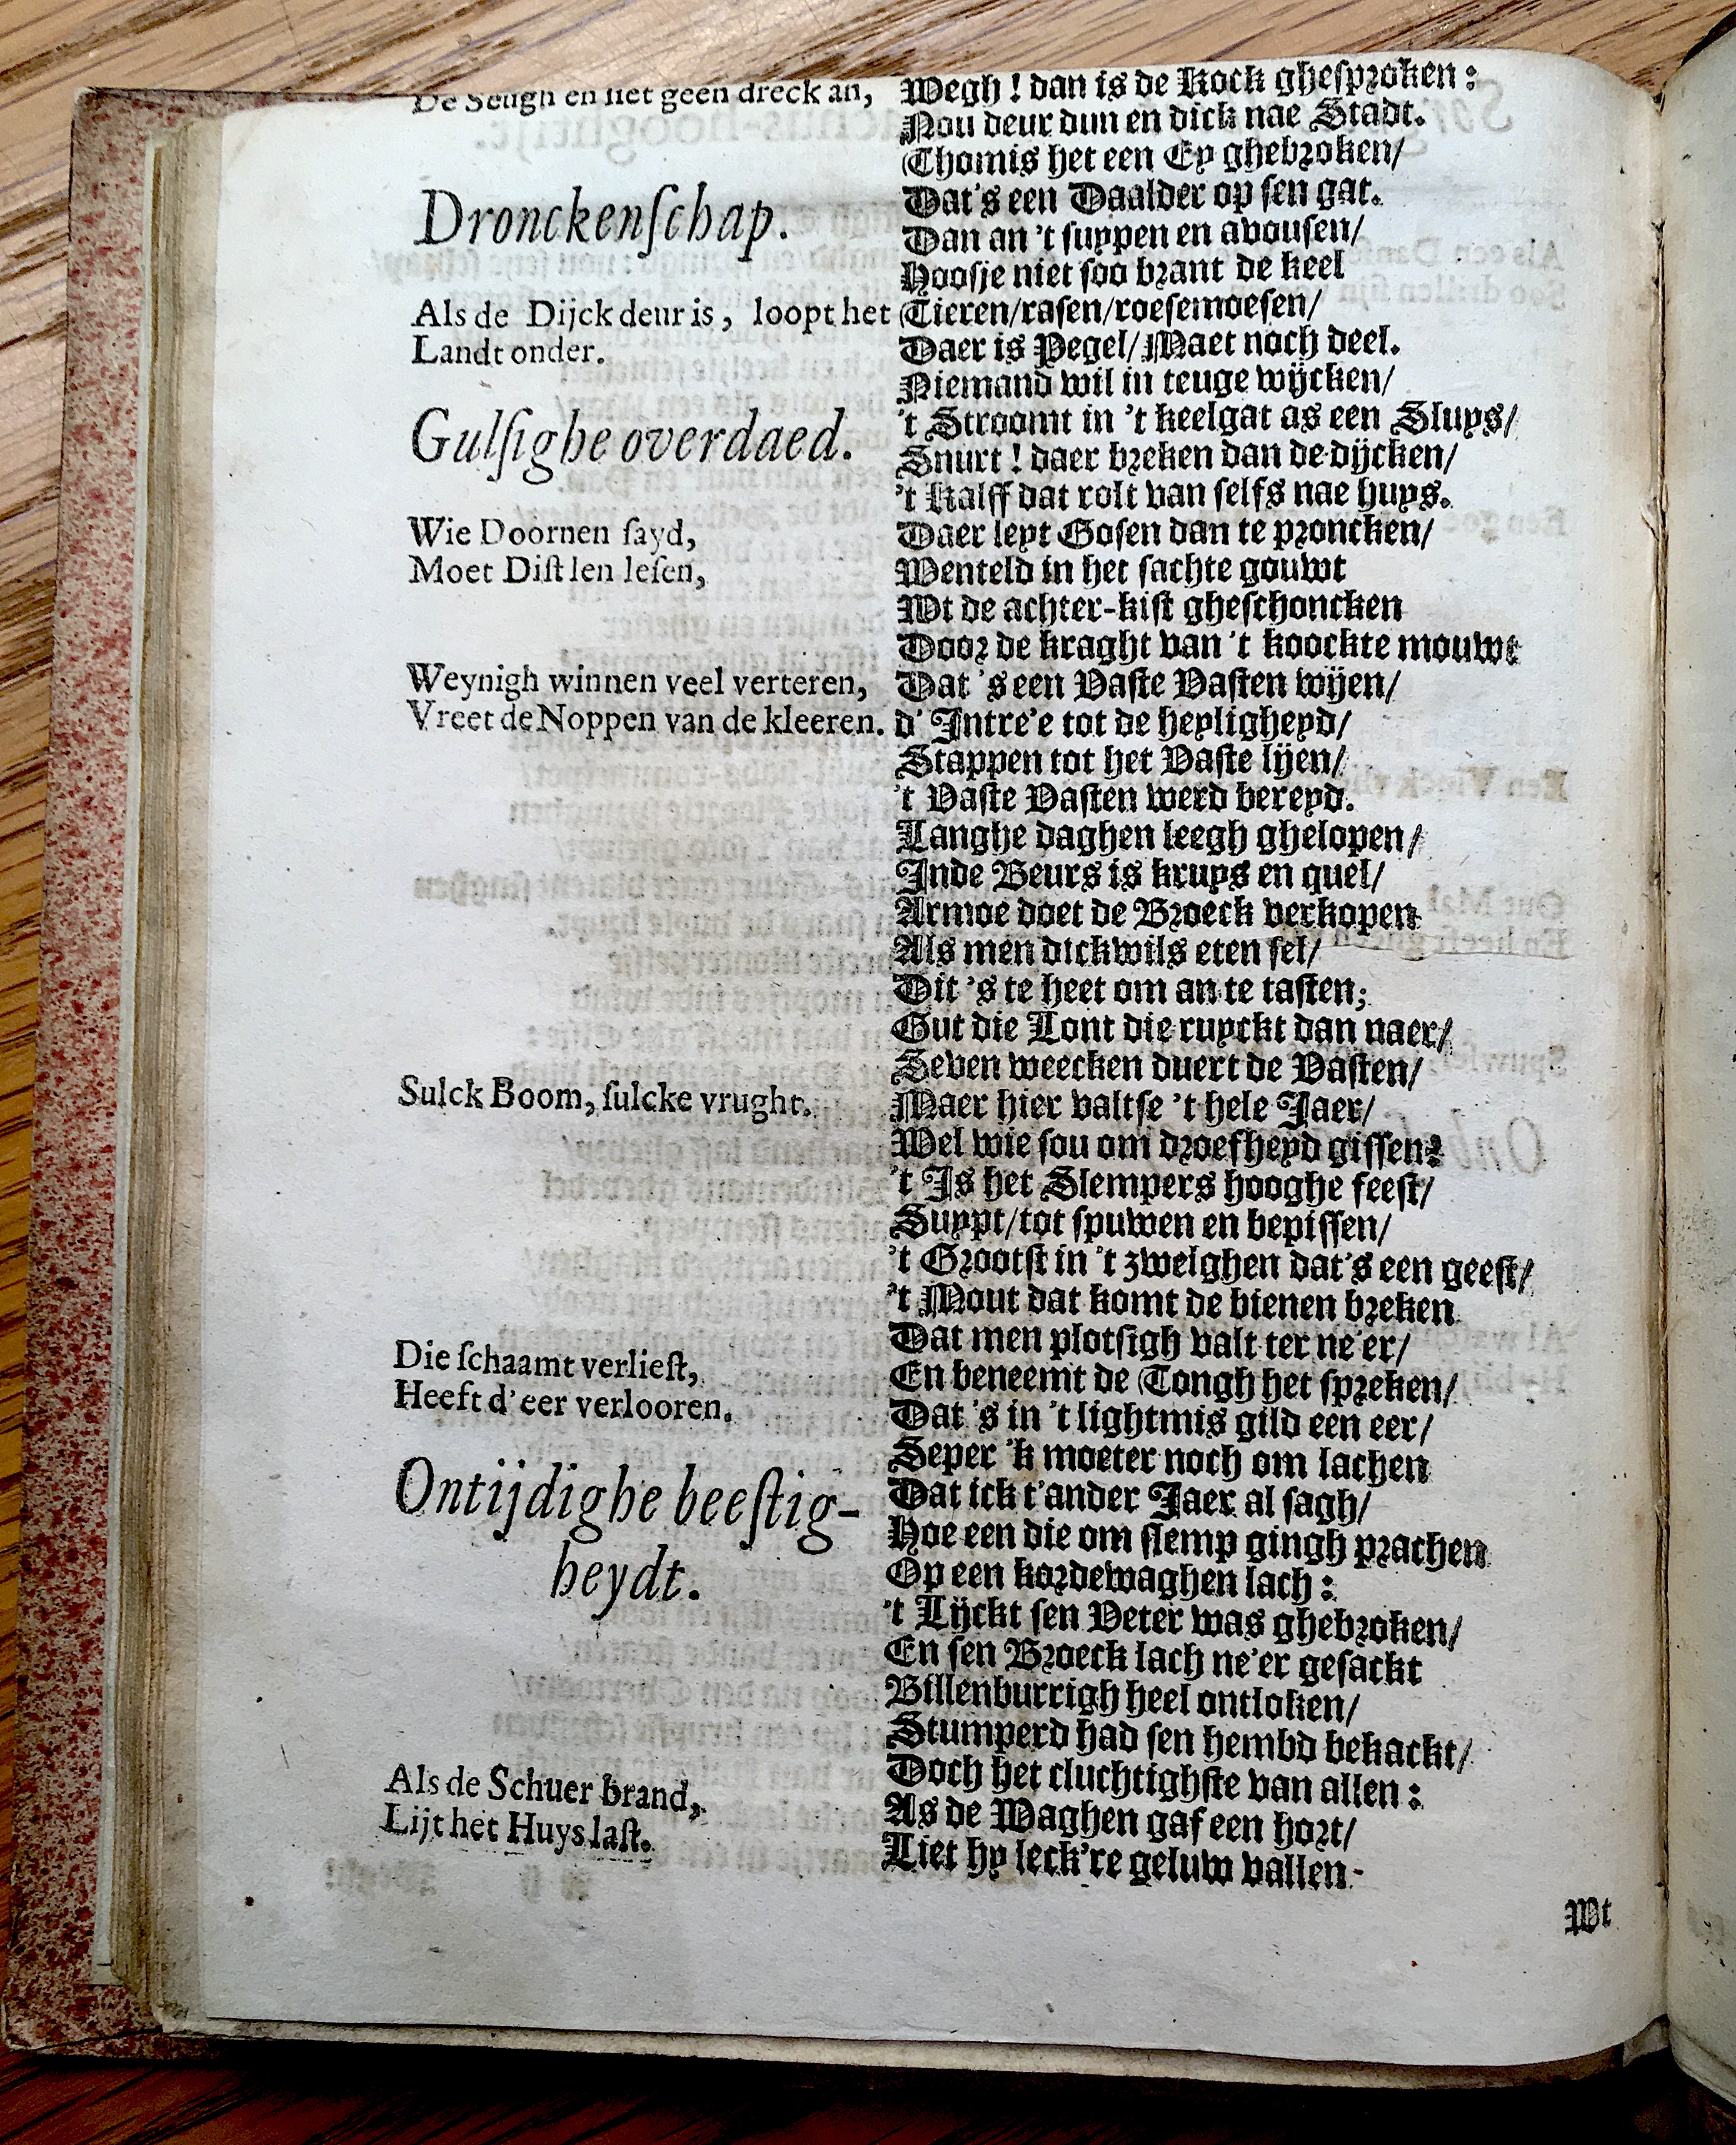 De Seugh en liet geen dreck an,
Dronckenſchap.
Als de Dijck deur is, loopt het
Landt onder.
Gulſighe overdaed.
Wie Doornen ſayd,
Moet Diſtlen leſen,
Weynigh winnen veel verteren,
Vreet de Noppen van de kleeren.
Sulck Boom, ſulcke vrught.
Die ſchaamt verlieſt,
Heeft d'eer verlooren.
Ontijdighe beeſtig-
heydt.
Als de Schuer brand,
Lijt het Huys laſt.
Wegh! dan is de Kock gheſproken:
Nou deur dun en dick nae Stadt.
Thomis het een Ey ghebroken/
Dat's een Daalder op ſen gat.
Dan an 't ſuypen en avouſen/
Hoosje niet ſoo brant de keel
Tieren/raſen/roeſemoeſen/
Daer is Pegel/Maet noch deel.
Niemand wil in teuge wijcken/
't Stroomt in 't keelgat as een Sluys/
Snurt! daer breken dan de dijcken/
't Kalff dat rolt van ſelfs nae huys.
Daer leyt Goſen dan te proncken/
Wenteld in het ſachte gouwt
Wt de achter-kiſt gheſchoncken
Door de kraght van 't koockte mouwt
Dat 's een Vaſte Vaſten wijen/
d' Intre'e tot de heyligheyd/
Stappen tot het Vaſte lijen/
't Vaſte Vaſten werd bereyd.
Langhe daghen leegh ghelopen/
Inde Beurs is kruys en quel/
Armoe doet de Broeck verkopen
Als men dickwils eten ſel/
Dit 's te heet om an te taſten;
Gut die Lont die ruyckt dan naer/
Seven weecken duert de Vaſten/
Maer hier valtſe 't hele Jaer/
Wel wie ſou om droefheyd giſſen?
't Is het Slempers hooghe feeſt/
Suypt/tot ſpuwen en bepiſſen/
't Grootſt in 't zwelghen dat's een geeſt/
't Mout dat komt de bienen breken
Dat men plotſigh valt ter ne'er/
En beneemt de Tongh het ſpreken/
Dat 's in 't lightmis gild een eer/
Seper 'k moeter noch om lachen
Dat ick t'ander Jaer al ſagh/
Hoe een die om ſlemp gingh prachen
Op een kordewaghen lach:
't Lijckt ſen Veter was ghebroken/
En ſen Broeck lach ne'er geſackt
Billenburrigh heel ontloken/
Stumperd had ſen hembd bekackt/
Doch het cluchtighſte van allen:
As de Waghen gaf een hort/
Liet hy leck're geluw vallen.
Wt